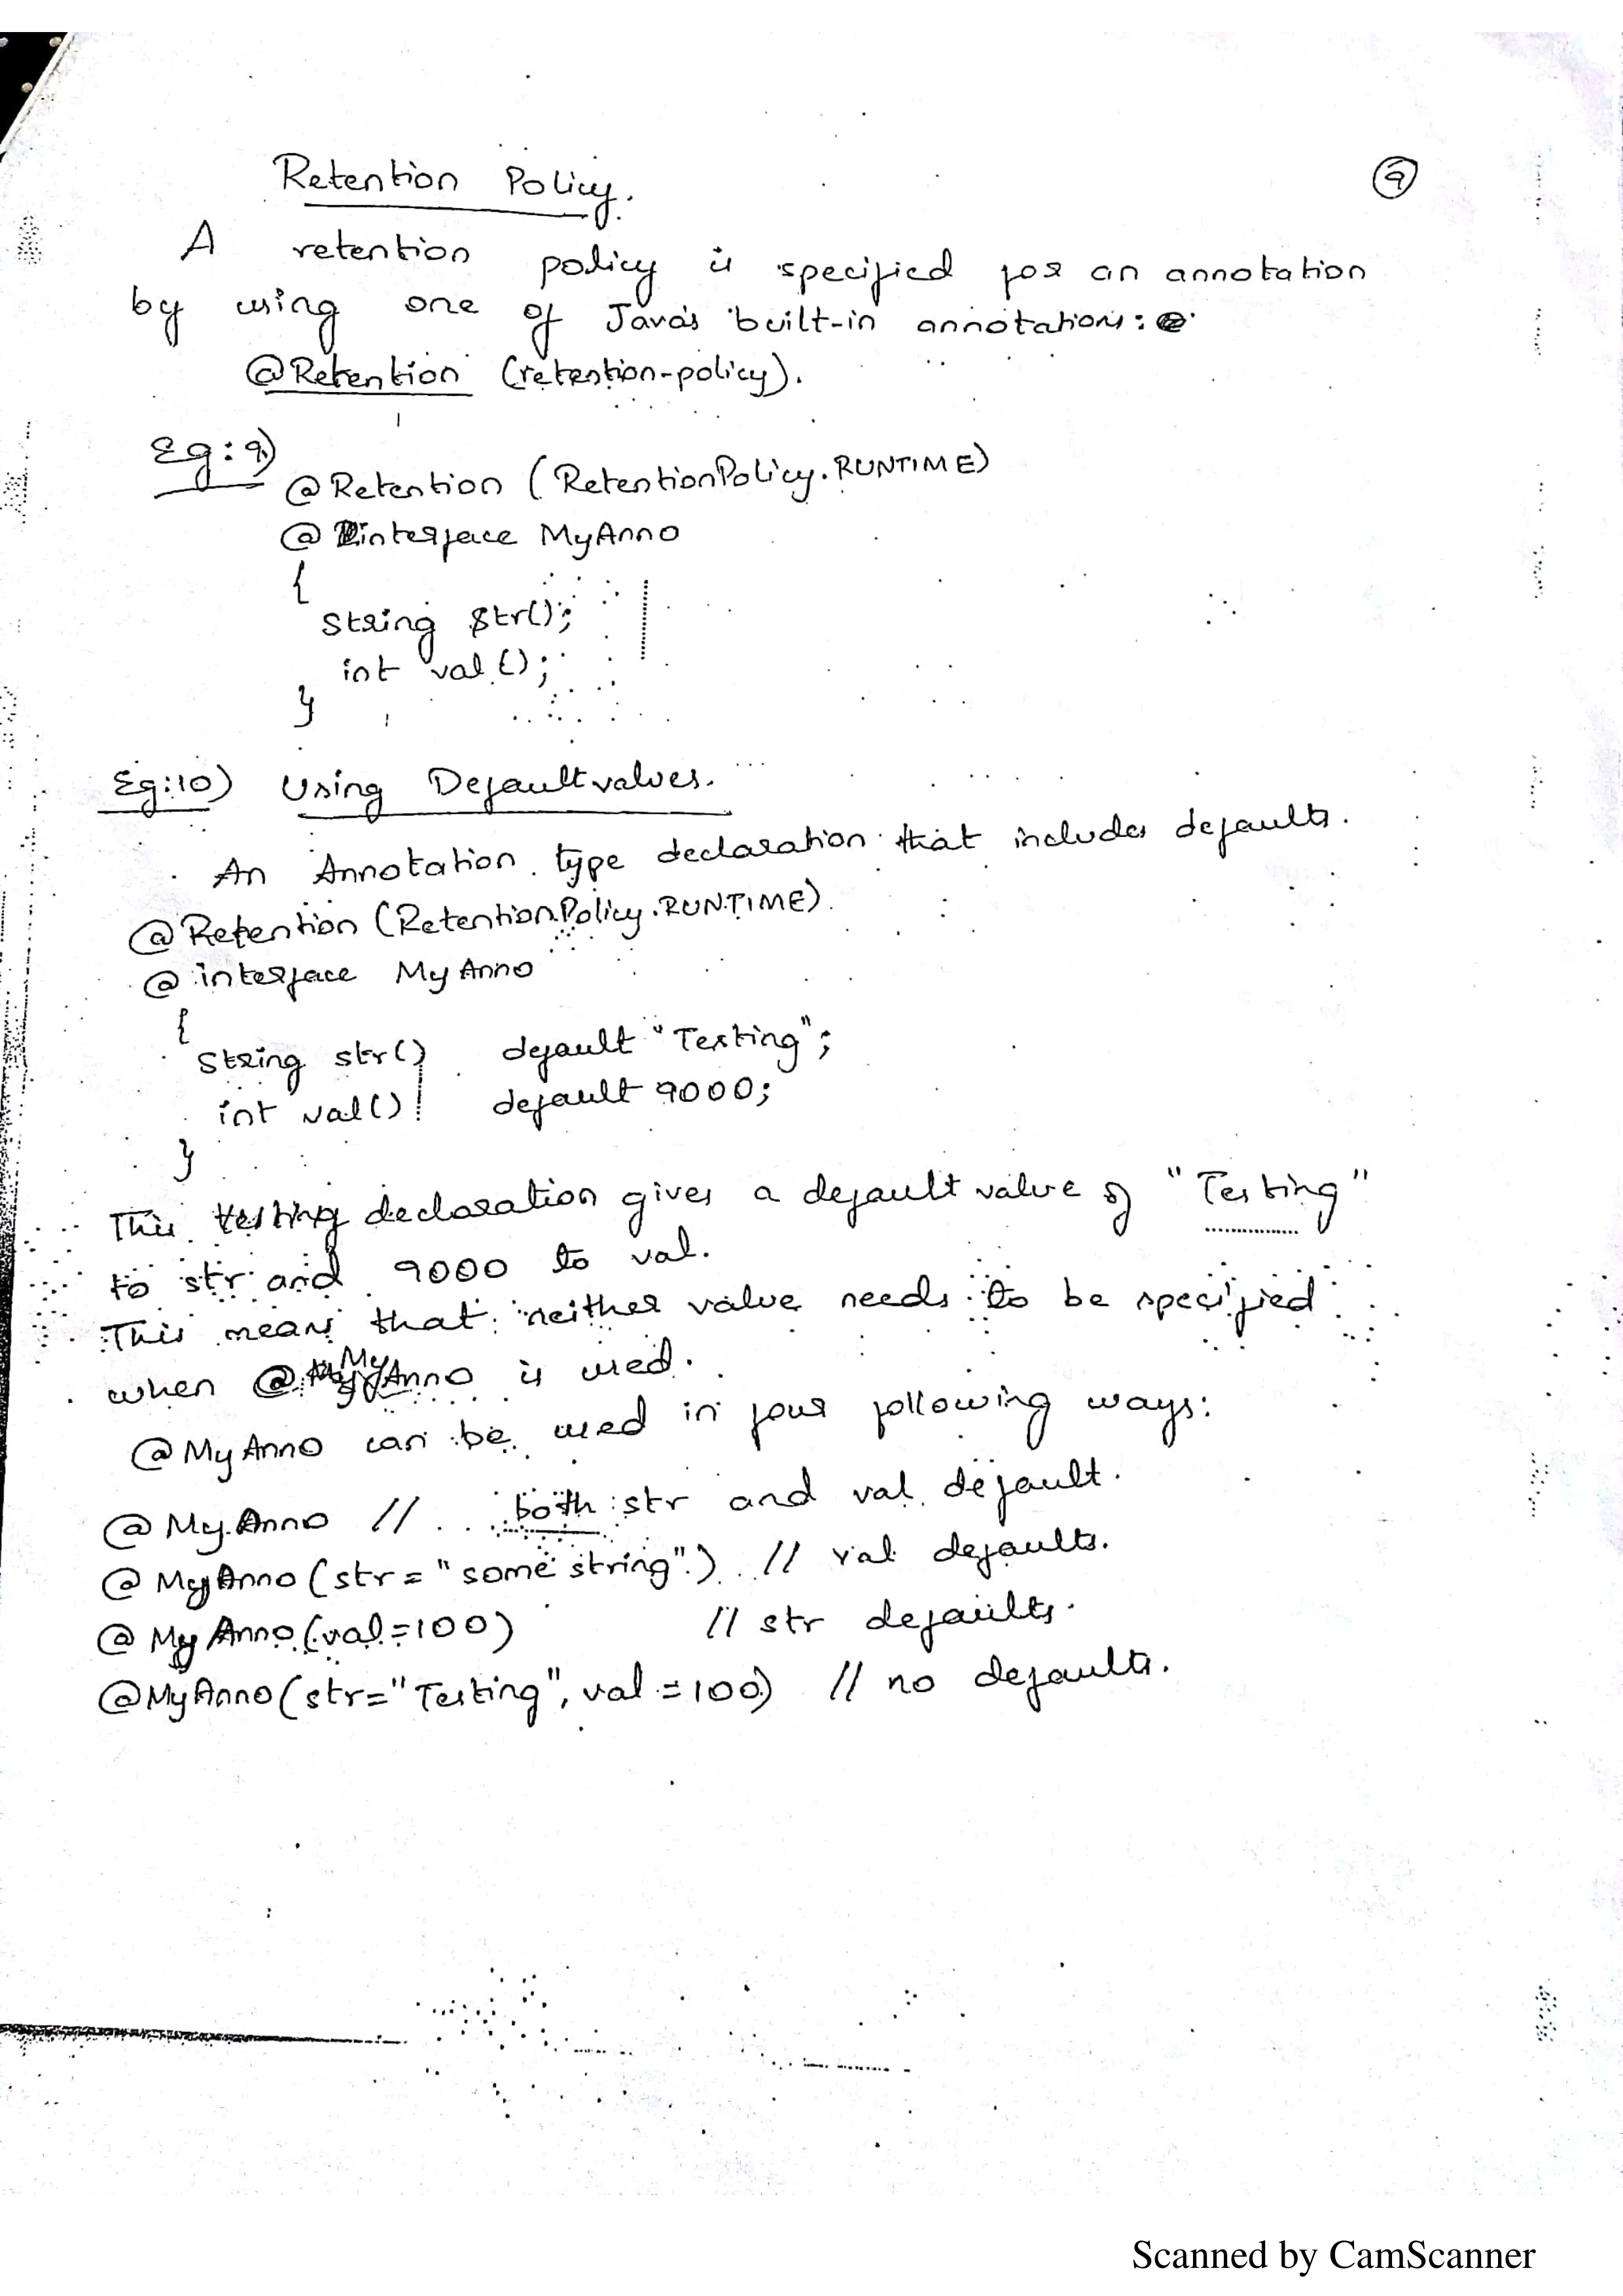 Retention Policy.
9
A retention policy is specified for an annotation
by using one of Java's built-in annotations:
@Retention (retention-policy).
Eg:9)
@Retention (RetentionPolicy.RUNTIME)
@interface MyAnno
{
String str();
int val();
}
Eg:10) Using Default values.
An Annotation type declaration that includes defaults.
@Retention (RetentionPolicy.RUNTIME)
@interface MyAnno
{
String str() default "Testing";
int val() default 9000;
}
This testing declaration gives a default value of "Testing"
to str and 9000 to val.
This means that neither value needs to be specified
when @MyAnno is used.
@MyAnno can be used in four following ways:
@MyAnno // both str and val default.
@MyAnno(str = "some string") // val defaults.
@MyAnno(val=100) // str defaults.
@MyAnno(str="Testing", val = 100) // no defaults.
Scanned by CamScanner